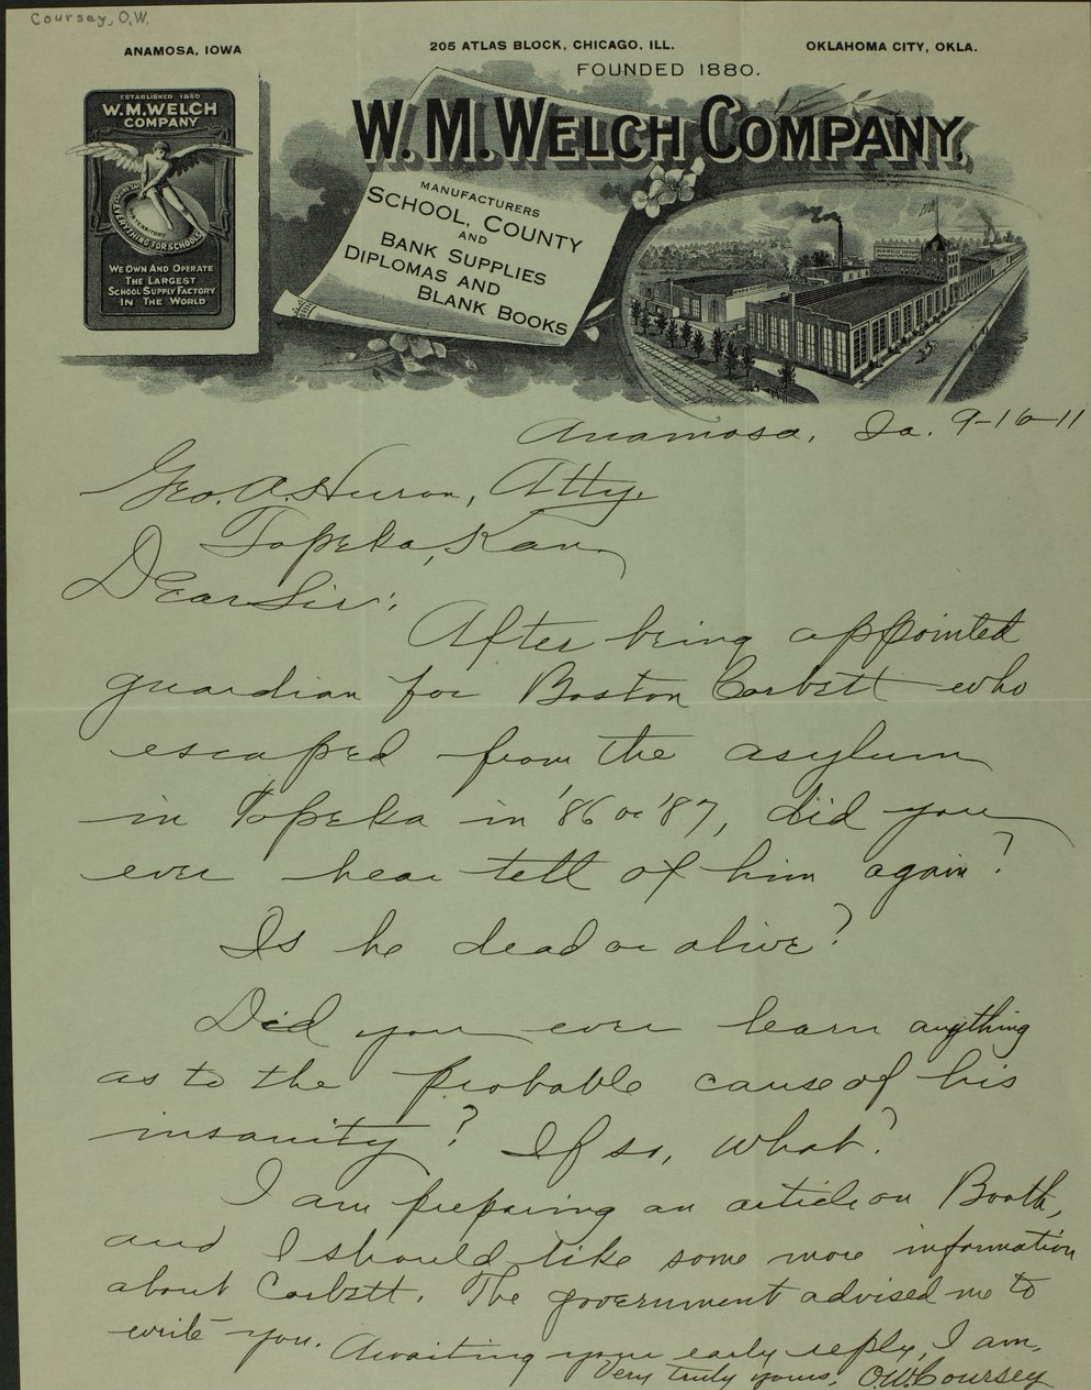 Coursey, O.W.
ANAMOSA, IOWA
205 ATLAS BLOCK, CHICAGO, ILL.
OKLAHOMA CITY, OKLA.
FOUNDED 1880.
W. M. WELCH COMPANY,
ESTABLISHED 1880
W.M.WELCH
COMPANY
EVERYTHING FOR SCHOOLS
WE OWN AND OPERATE
THE LARGEST
SCHOOL SUPPLY FACTORY
IN THE WORLD
MANUFACTURERS
SCHOOL, COUNTY
AND
BANK SUPPLIES
DIPLOMAS AND
BLANK BOOKS
Anamosa, Ia. 9-16-11
Geo. A. Huron, Atty.
Topeka, Kan.
Dear Sir:
After being appointed
guardian for Boston Corbett who
escaped from the asylum
in Topeka in '86 or '87, did you
ever hear tell of him again?
Is he dead or alive?
Did you ever learn anything
as to the probable cause of his
insanity? If so, what?
I am preparing an article on Booth,
and I should like some more information
about Corbett. The government advised me to
write you. Awaiting your early reply, I am,
Very truly yours, O.W. Coursey